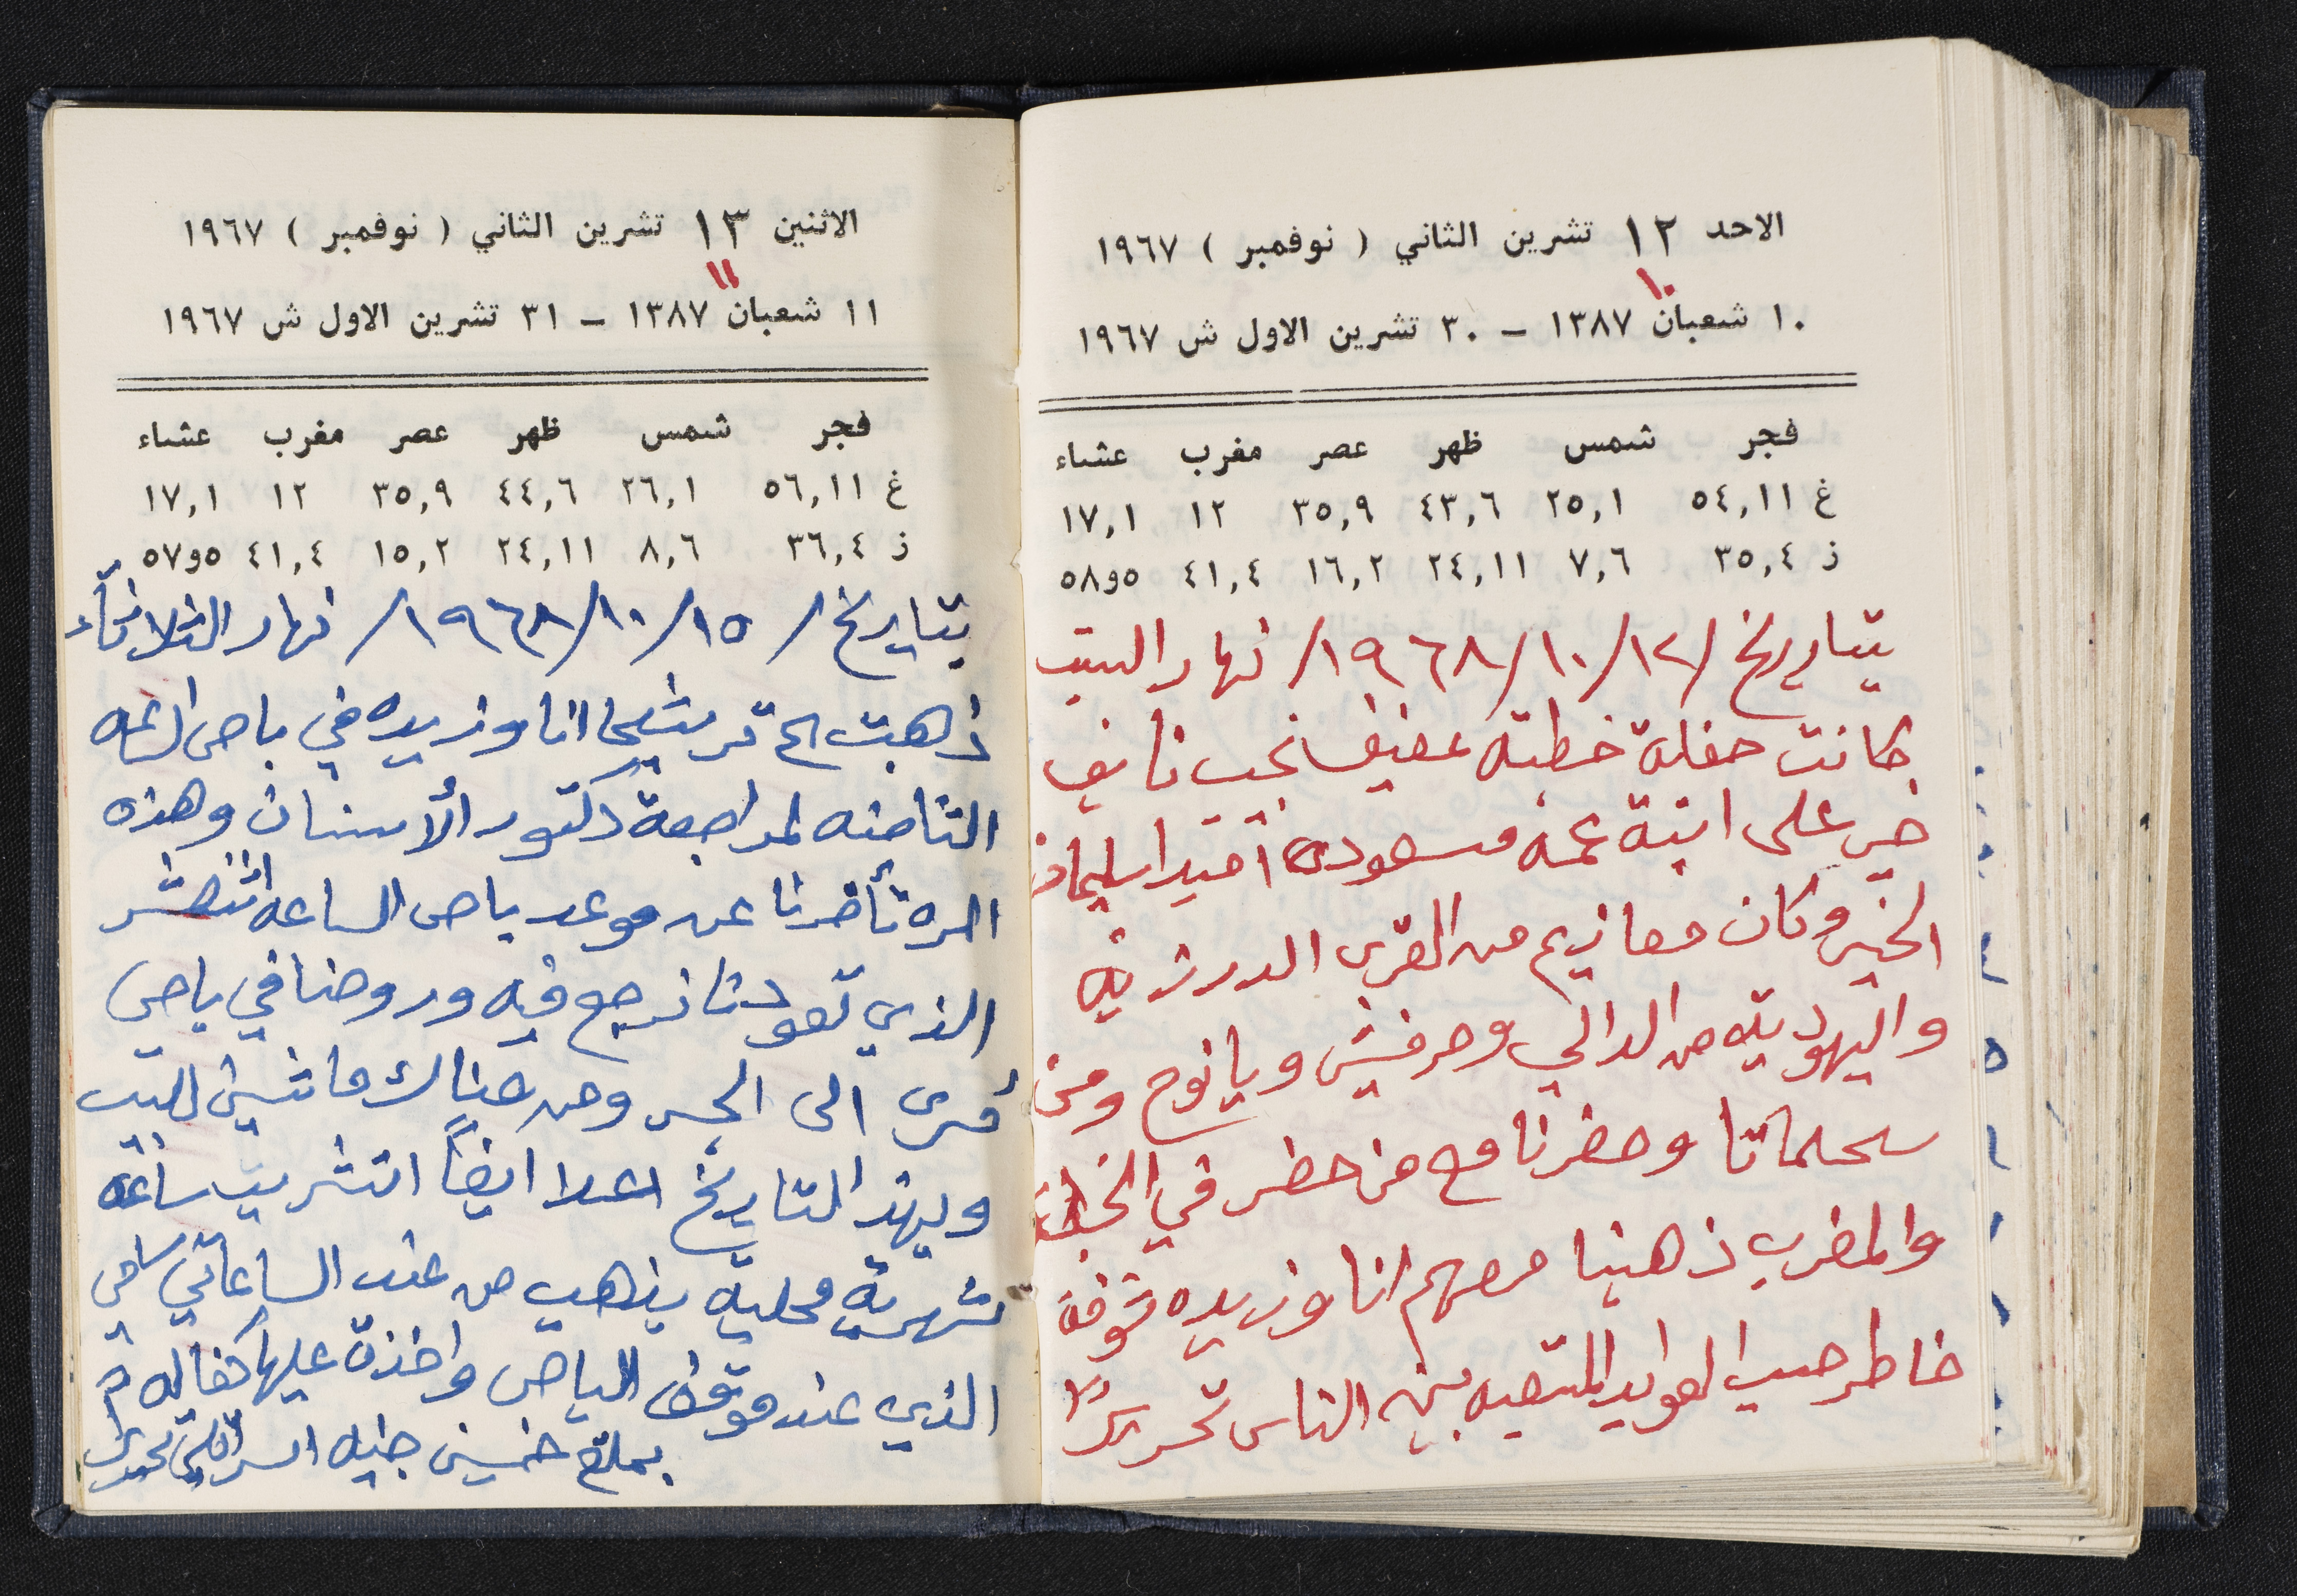 الاحد ١٢ تشرين الثاني ( نوفمبر ) ١٩٦٧
١٠
١٠ شعبان ١٣٨٧ – ٣٠ تشرين الاول ش ١٩٦٧
فجر شمس ظهر عصر مغرب عشاء
غ ٥٤,١١ ٢٥,١ ٤٣,٦ ٣٥,٩ ١٢ ١٧,١
ز ٣٥,٤ ٧,٦ ٢٤,١١ ١٦,٢ ٤١,٤ ٥و٥٨
بتاريخ /١٢/١٠/١٩٦٨/ نهار السبت
كانت حفلة خطبته عفيف نجيب نايف
خير على ابنة عمه مسعوده اميرا سليمان
الخير وكان معازيم من القرى الدرزيه
واليهوديه من الدالي وحرفيش ويانوح ومن
سحماتا وحضرنا مع من حضر في الخطبة
والمغرب ذهبنا معهم انا وزيده شوفة
خاطر حسب العوايد المتبعه بين الناس تحريرًا
الاثنين ١٣ تشرين الثاني ( نوفمبر ) ١٩٦٧
١١
١١ شعبان ١٣٨٧ – ٣١ تشرين الاول ش ١٩٦٧
فجر شمس ظهر عصر مغرب عشاء
غ ٥٦,١١ ٢٦,١ ٤٤,٦ ٣٥,٩ ١٢ ١٧,١
ز ٣٦,٤ ٨,٦ ٢٤,١١ ١٥,٢ ٤١,٤ ٥و٥٧
بتاريخ /١٥/١٠/١٩٦٨/ نهار الثلاثاء
ذهبت الى ترشيحا انا وزيده في باص الساعه
الثامنه لمراجعة دكتور الأسنان وهذه
المره تأخرنا عن موعد باص الساعه اثنعشر
الذي تعودنا نرجع فيه وروحنا في باص
أخرى الى الجسر ومن هناك ماشين للبيت
وبهذ التاريخ اعلا ايضاً اشتريت ساعه
شهريه محليه بذهب من عند الساعاتي سامي
الذي عند موقف الباص واخذة عليها كفاله م
بملغ خمسين جنيه اسرائيلي تحريرا